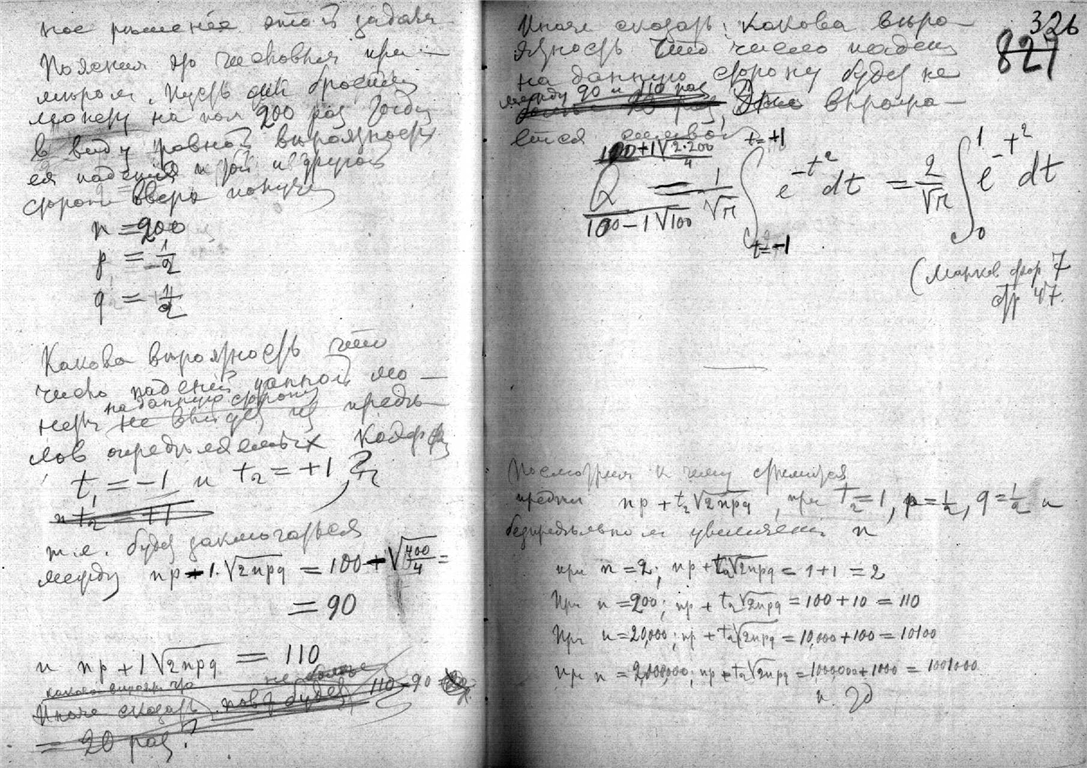 ное решение этой задачи.
Поясним это числовым при-
мером. Пусть мы бросили
монету на пол 200 раз. Тогда
в виду равной вероятности
ея падения и той и другой
стороной вверх получим
n = 200
p = 1/2
q = 1/2
Какова вероятность что
число падений данной мо-
неты на данную сторону
не выйдет из преде-
лов определяемых
t₁ = -1 и t₂ = +1
и t₂ = +1
т.е. будет заключаться
между np - 1·√2npq = 100 - √400/4 =
= 90
и np + 1√2npq = 110
какова вероят. что не более
Иначе сказать, будет 110-90
= 20 раз?
326
827
Иначе сказать, какова веро-
ятность что число падений
на данную сторону будет не
между 90 и 110 раз
Это выража-
ется
100+1√2·200/4 t=+1
Q = 1/√π ∫ e^-t² dt = 2/√π ∫₀¹ e^-t² dt
100-1√100 t=-1
(Марков фор. 7
стр 47.
Посмотрим к чему стремится
предел np + t₂√2npq, при t₂=1, p=1/2, q=1/2 и
безпредельном увеличении n
при n = 2; np + t₂√2npq = 1+1 = 2
При n = 200; np + t₂√2npq = 100 + 10 = 110
При n = 20,000; np + t₂√2npq = 10,000 + 100 = 10100
При n = 2,000,000; np + t₂√2npq = 1000000 + 1000 = 1001000
и. т. д